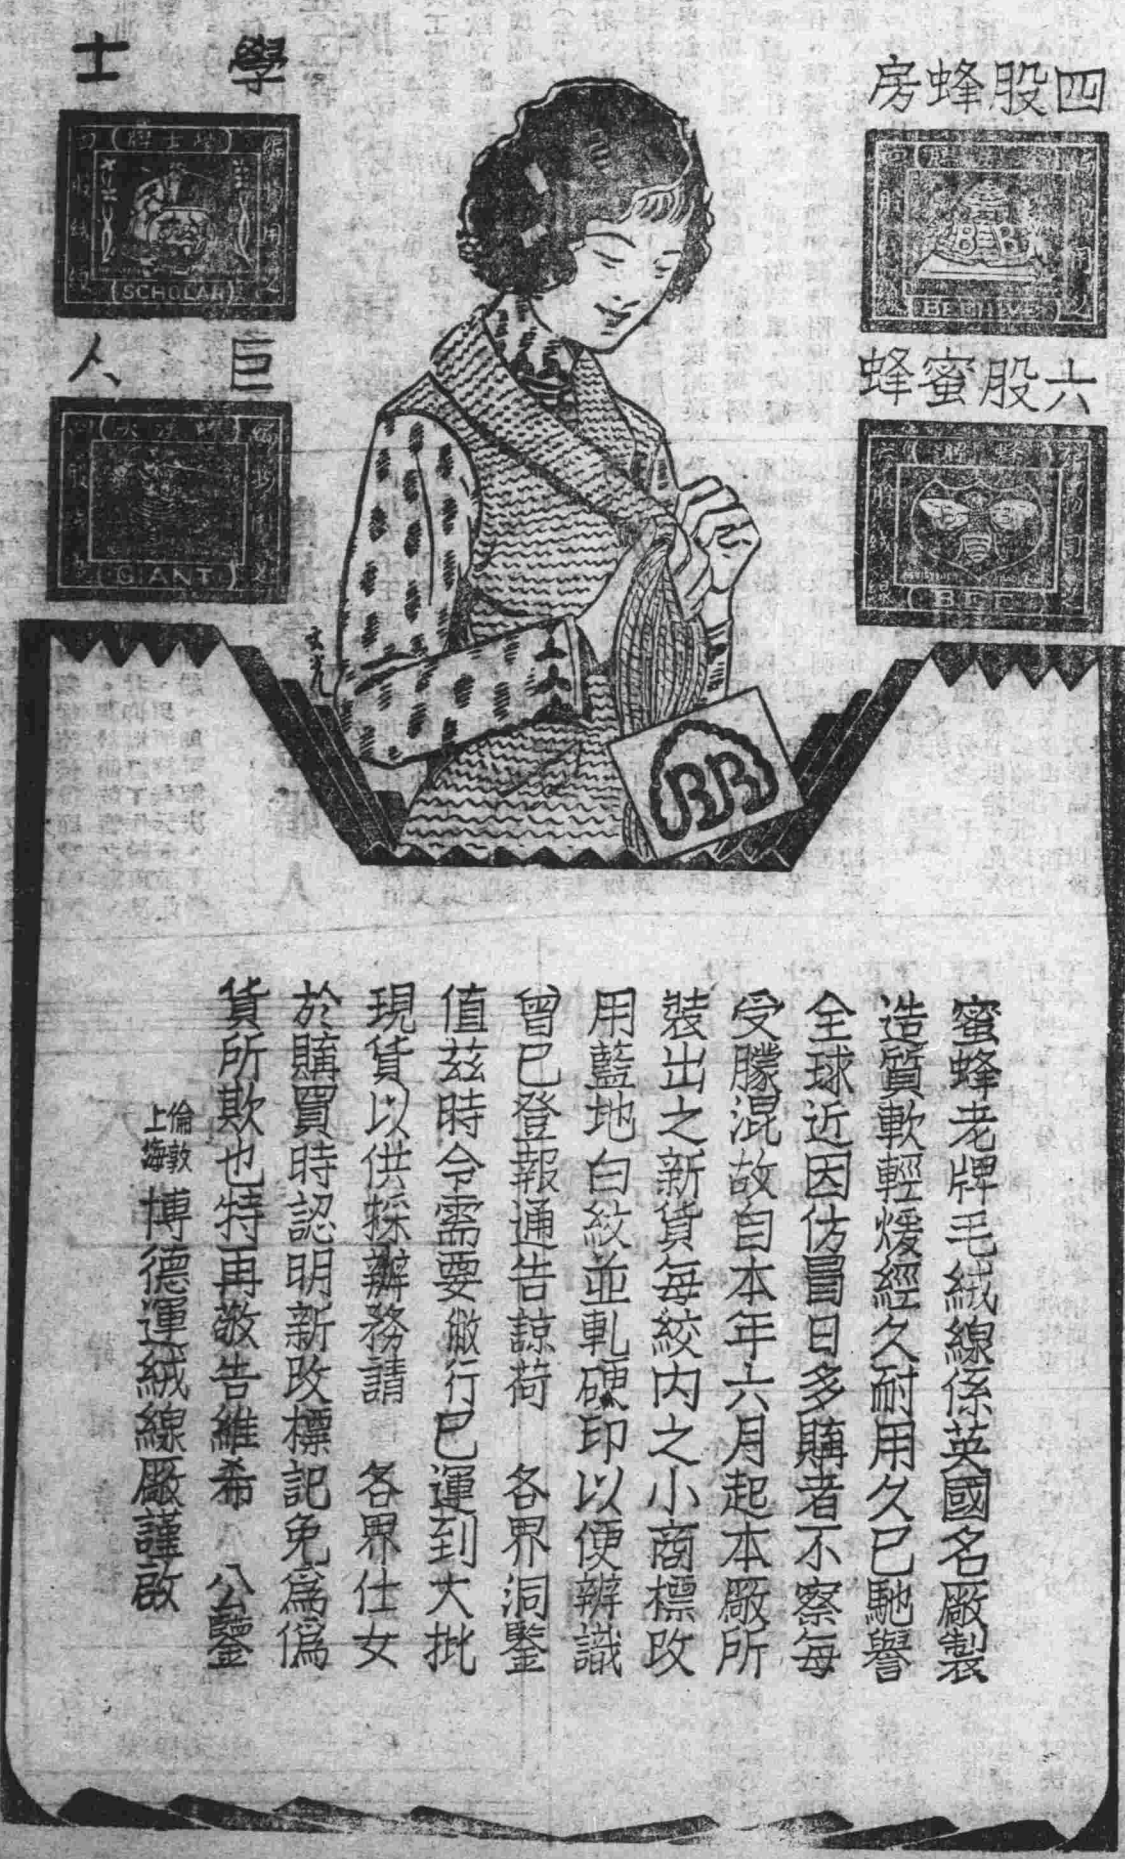 四股蜂房
BEEHIVE
六股蜜蜂
BEE
學士
SCHOLAR
巨人
GIANT
BB
蜜蜂老牌毛絨線係英國名廠製
造質軟輕煖經久耐用久已馳譽
全球近因仿冒日多購者不察每
受朦混故自本年六月起本廠所
裝出之新貨每絞内之小商標改
用藍地白紋並軋硬印以便辨識
曾已登報通告諒荷　各界洞鑒
值茲時令需要敝行已運到大批
現貨以供採辦務請　各界仕女
於購買時認明新改標記免為偽
貨所欺也特再敬告維希　公鑒
倫敦
上海
博德運絨線廠謹啟